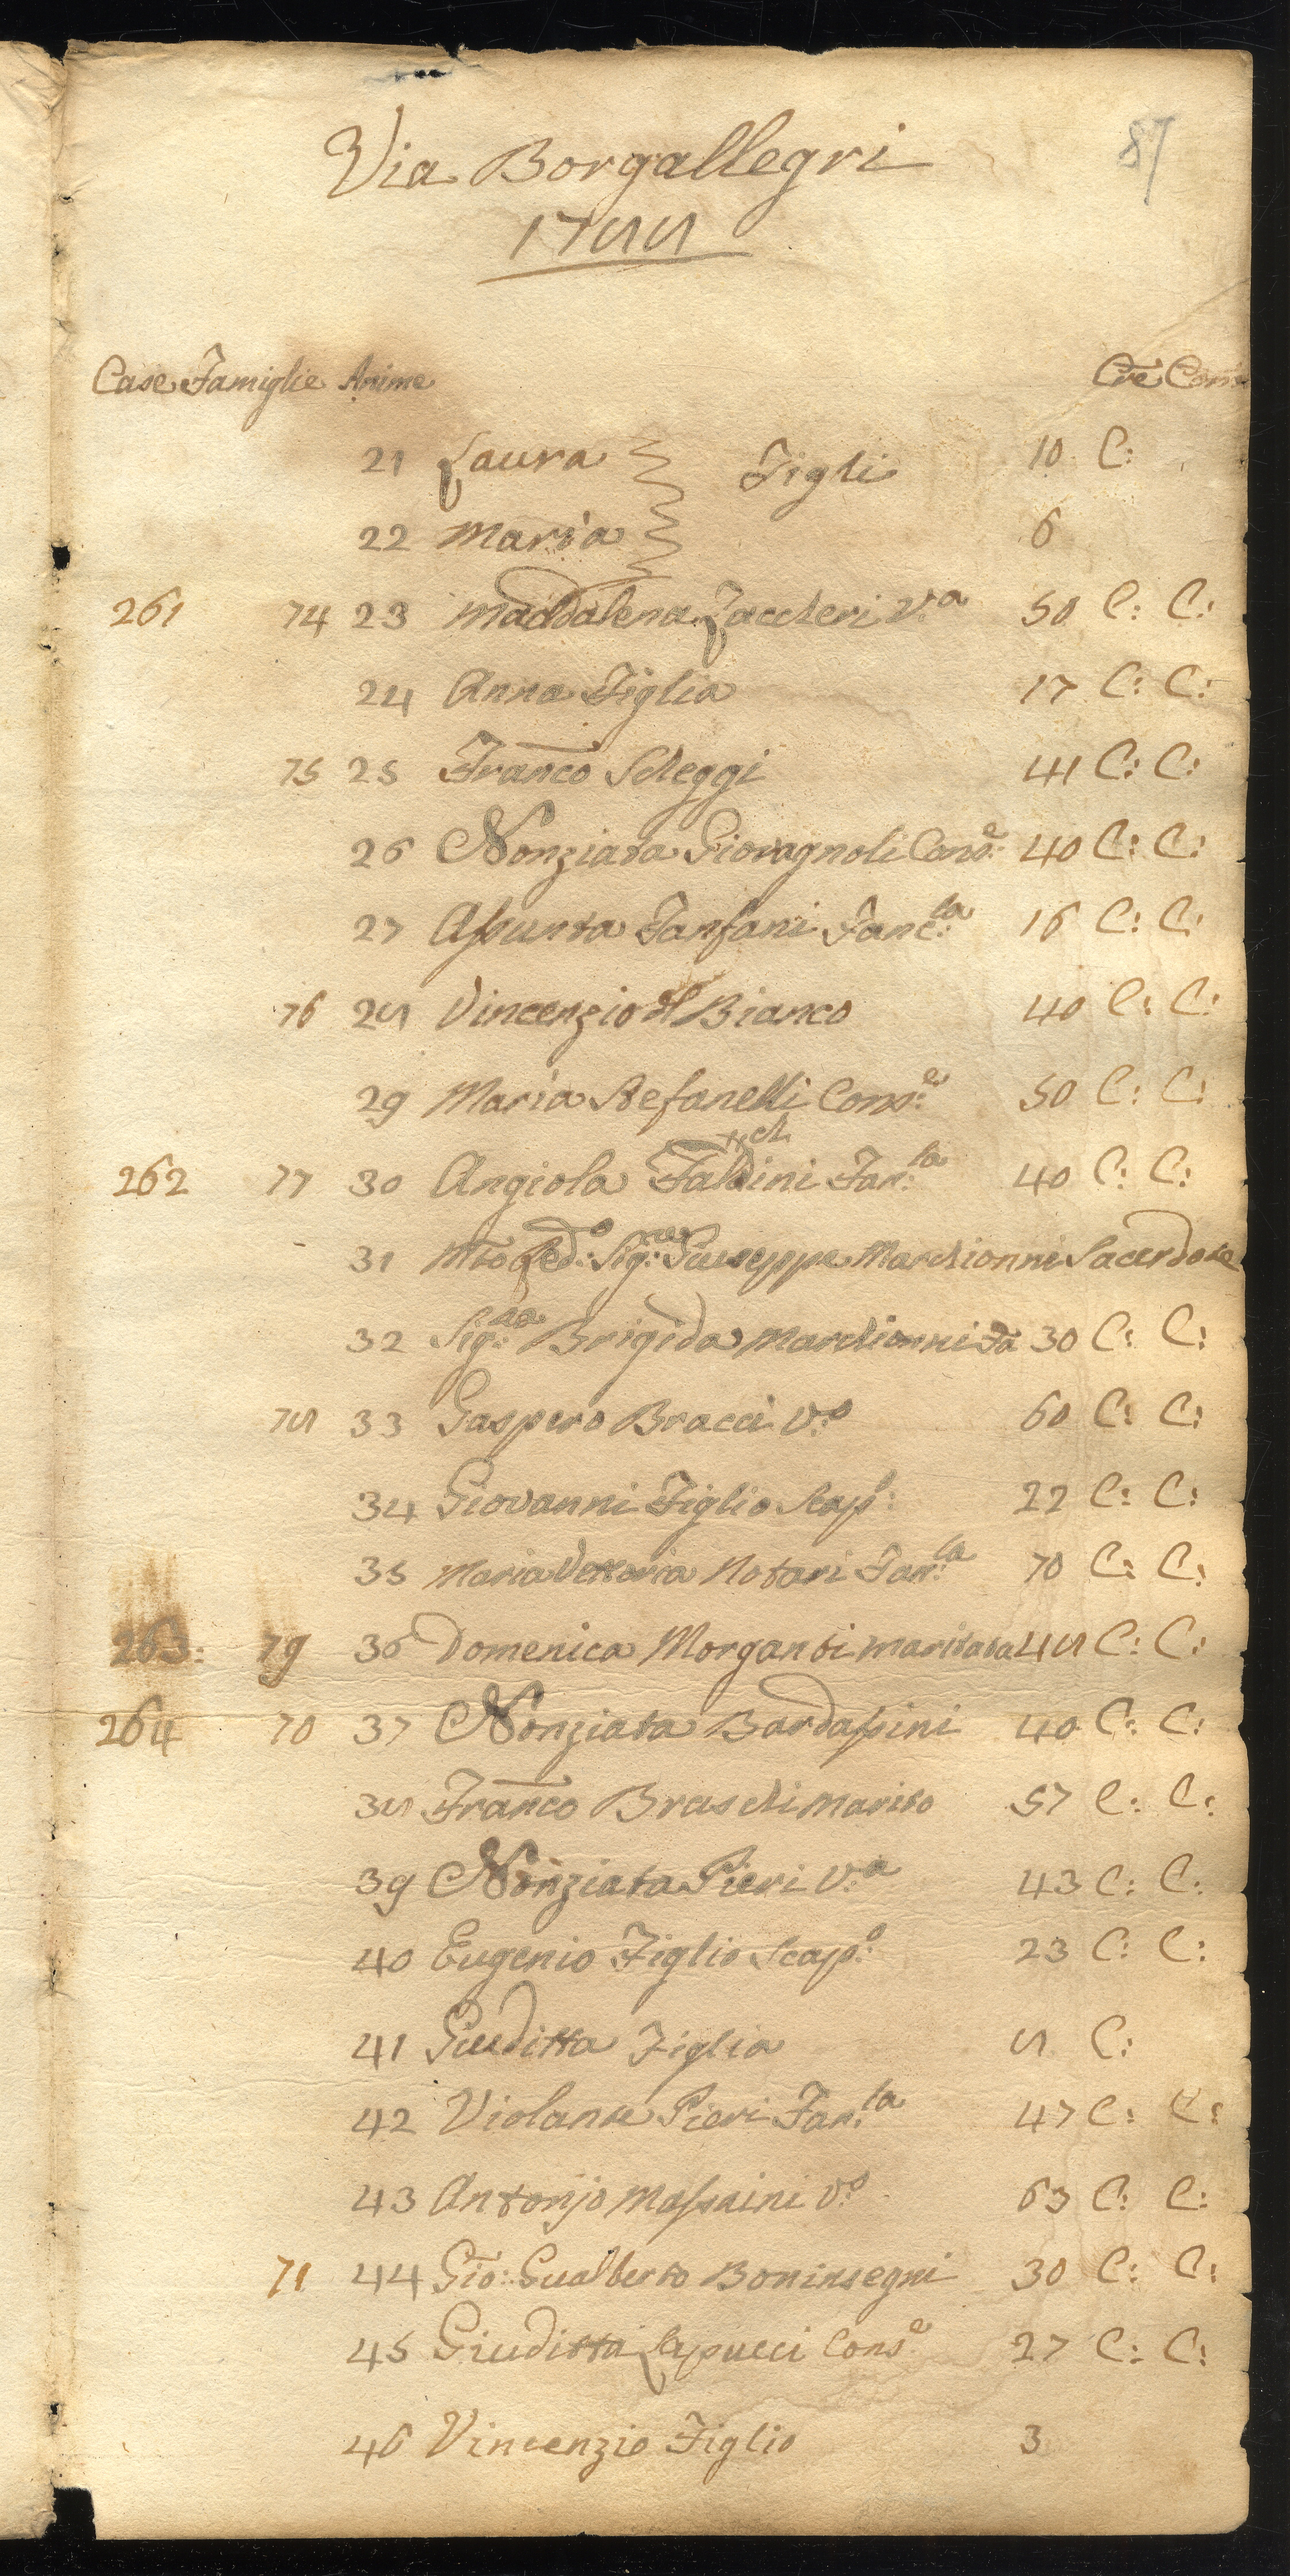 87
Via Borgallegri
1788
Case Famiglie Anime Cre Com
21 Laura Figli 10 C:
22 Maria 6
261 74 23 Maddalena Zaccheri V.a 50 C: C:
24 Anna Figlia 17 C: C:
75 25 Franco Scheggi 41 C: C:
26 Nonziata Giovagnoli Cons.e 40 C: C:
27 Assunta Fanfani Fanc.la 16 C: C:
76 28 Vincenzio del Bianco 40 C: C:
29 Maria Stefanelli Cons.e 50 C: C:
262 77 30 Angiola Faldini Fan.la 40 C: C:
31 Mto Red.o Sig.re Giuseppe Marchionni Sacerdote
32 Sig.ra Brigida Marchionni Fa 30 C: C:
78 33 Gaspero Bracci V.o 60 C: C:
34 Giovanni Figlio Scap.o 22 C: C:
35 Maria Vettoria Notari Fan.la 70 C: C:
263: 79 36 Domenica Morganti maritata 48 C: C:
264 70 37 Nonziata Bardassini 40 C: C:
38 Franco Bruschi marito 57 C: C:
39 Nonziata Pieri V.a 43 C: C:
40 Eugenio Figlio Scap.o 23 C: C:
41 Giuditta Figlia 8 C:
42 Violante Pieri Fan.la 47 C: C:
43 Antonjo Massaini V.o 63 C: C:
71 44 Gio: Gualberto Boninsegni 30 C: C:
45 Giuditta Lapucci Cons.e 27 C: C:
46 Vincenzio Figlio 3